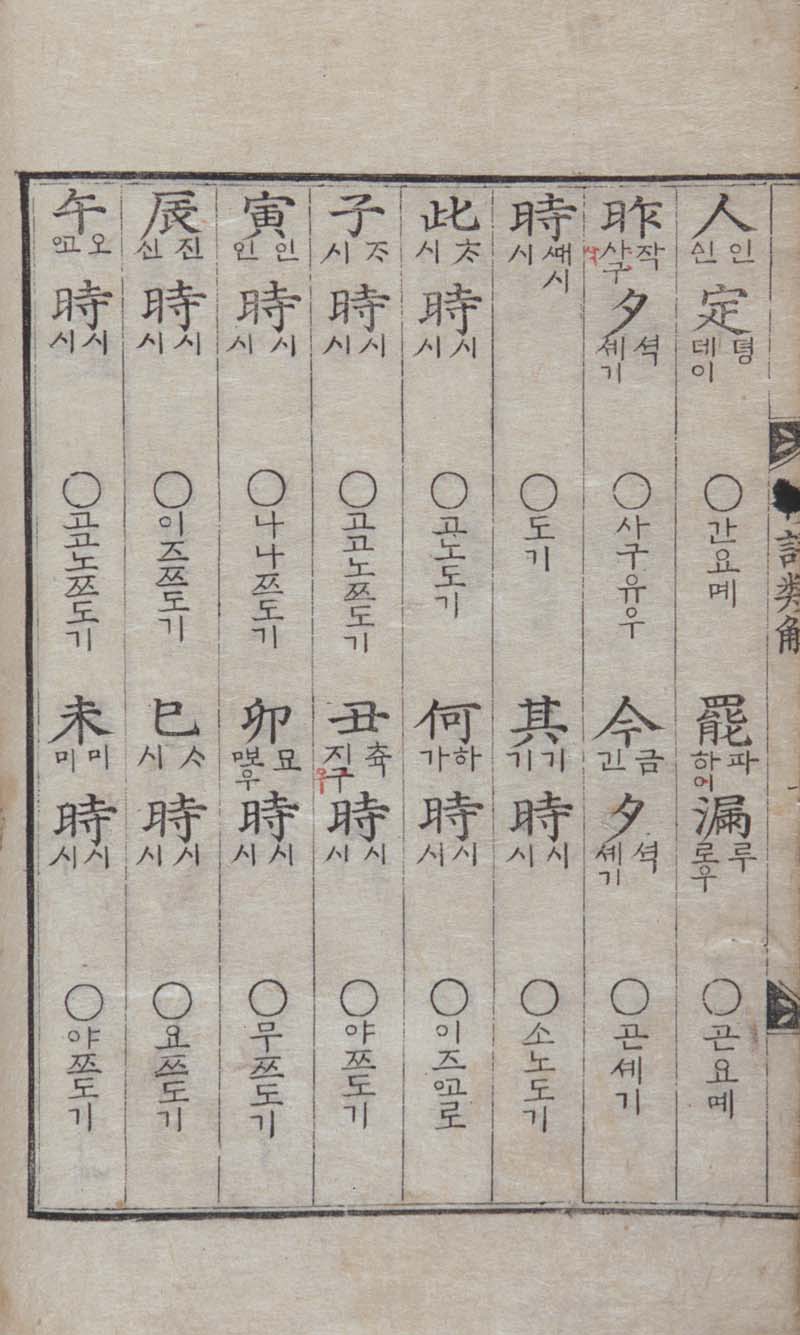 語類解
人 인 신 定 뎡 데이 ○간요몌 罷 파 하어 漏 루 로우 ○곤요몌
昨 작 사구 夕 셕 셰기 ○사구유우 今 금 긴 夕 셕 셰기 ○곤셰기
時 시 시 ○도기 其 기 기 時 시 시 ○소노도기
此 ᄎᆞ 시 時 시 시 ○고노도기 何 하 가 時 시 시 ○이즈ᅁᅩ로
子 ᄌᆞ 시 時 시 시 ○고고노쯔도기 丑 츅 지구 우 時 시 시 ○야쯔도기
寅 인 인 時 시 시 ○나나쯔도기 卯 묘 ᄜᅩ우 時 시 시 ○무쯔도기
辰 진 신 時 시 시 ○이즈쯔도기 巳 ᄉᆞ 시 時 시 시 ○요쯔도기
午 오 ᅁᅩ 時 시 시 ○고고노쯔도기 未 미 미 時 시 시 ○야쯔도기